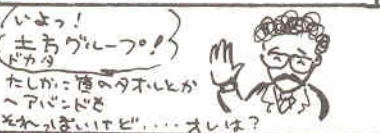 いよっ!
土方グループ!!
ドカタ
たしかに頭のタオルとか
ヘアバンドも
それっぽいけど‥‥オレは?